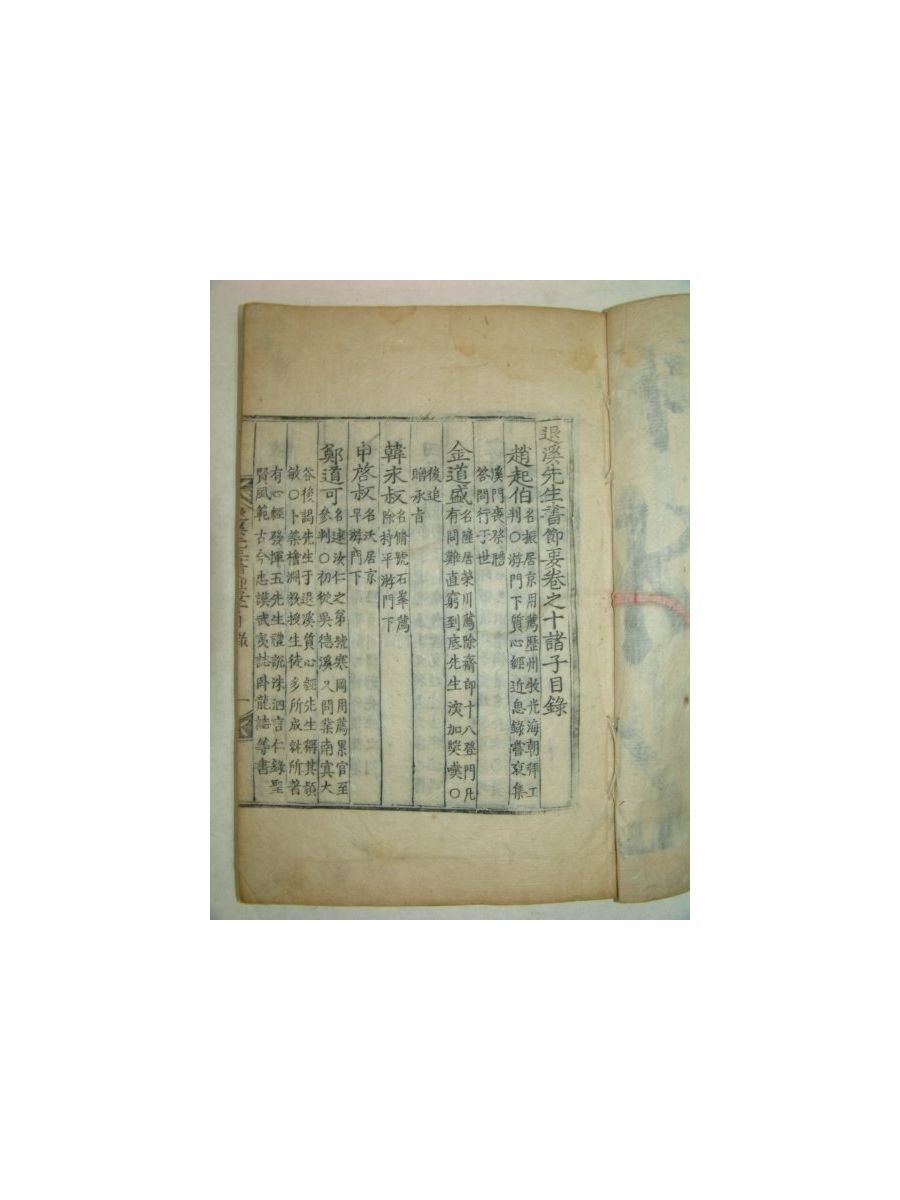 退溪先生書節要卷之十諸子目錄
趙起伯 名振居京用薦歷州牧光海朝拜工
判〇游門下質心經近思錄嘗裒集
溪門喪祭禮
答問行于世
金道盛 名隆居榮川薦除齋郎十八登門凡
有問難直窮到底先生深加奬嘆〇
後追
贈承旨
韓永叔 名脩號石峯薦
除持平游門下
申啓叔 名沃居京
早游門下
鄭道可 名逑汝仁之第號寒岡用薦累官至
參判〇初從吳德溪又問業南冥大
谷後謁先生于退溪質心經先生稱其穎
敏〇卜築檜淵敎授生徒多所成就所著
有心經發揮五先生禮說洙泗言仁錄聖
賢風範古今忠謨武夷誌臥龍誌等書